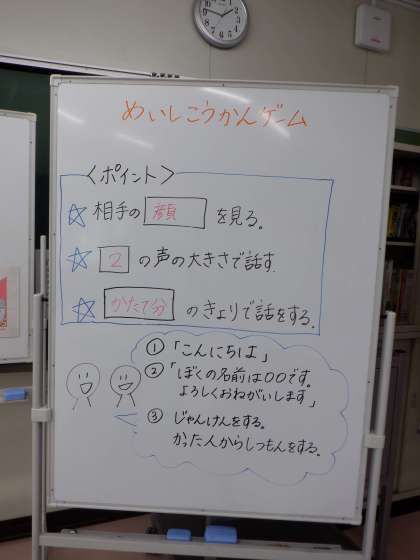 めいしこうかんゲーム
<ポイント>
☆相手の顔を見る。
☆2の声の大きさで話す.
☆かたて分のきょりで話をする.
①「こんにちは」
②「ぼくの名前は〇〇です。
よろしくおねがいします」
③じゃんけんをする。
かった人からしつもんをする。